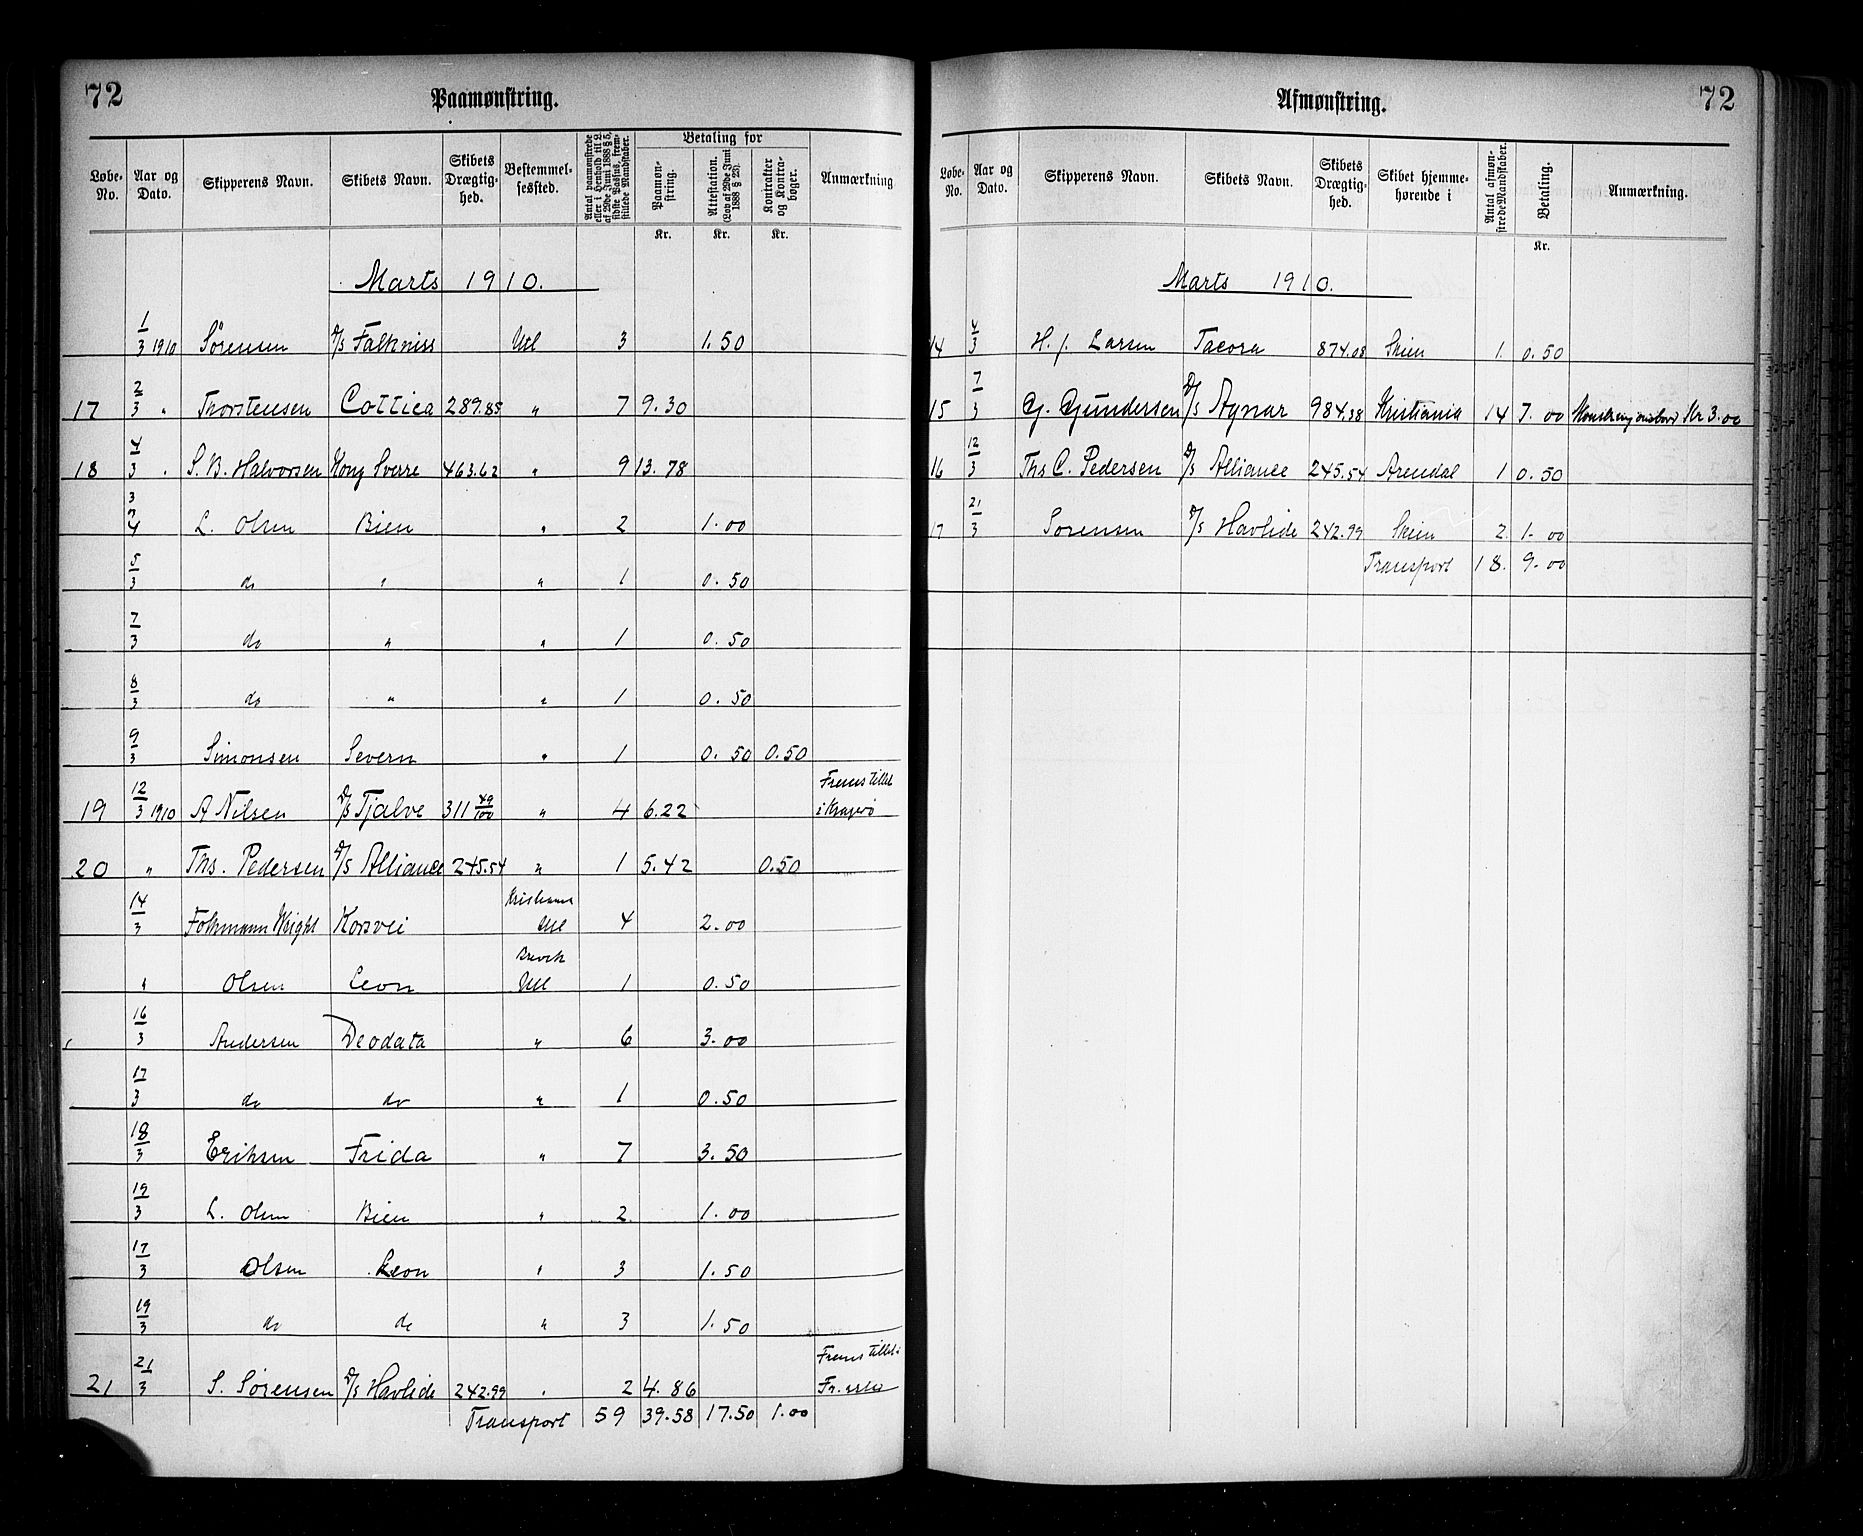 72
Paamønstring.
Løbe-No. | Aar og Dato. | Skipperens Navn. | Skibets Navn. | Skibets Drægtighed. | Bestemmelsessted. | Antal paamønstrede eller i Henhold til L. af 29de Juni 1888 § 5, sidste Passus, fremstillede Mandskaber. | Betaling for | Paamønstring. | Attestation. (Lov af 29de Juni 1888 § 23). | Kontrakter og Kontrabøger. | Anmærkning
Kr. | Kr. | Kr.
Marts 1910.
1/3 1910 Sørensen D/S Falkniss Utl 3 1.50
17 2/3 " Thorstensen Cottica 289.85 " 7 9.30
18 4/3 " S. B. Halvorsen Kong Sverre 463.62 " 9 13.78
3/4 L. Olsen Bien " 2 1.00
5/3 do " " 1 0.50
7/3 do " " 1 0.50
8/3 do " " 1 0.50
9/3 Simonsen Severn " 1 0.50 0.50
19 12/3 1910 A Nilsen D/S Tjalve 311 49/100 " 4 6.22 Fremstillet i Kragerø
20 " Ths. Pedersen D/S Alliance 245.54 " 1 5.42 0.50
14/3 Folkmann Wright Korsvei Kristiania Utl 4 2.00
" Olsen Leon Brevik Utl 1 0.50
16/3 Andersen Deodata " 6 3.00
17/3 do do " 1 0.50
18/3 Eriksen Frida " 7 3.50
19/3 L. Olsen Bien " 2 1.00
17/3 Olsen Leon " 3 1.50
19/3 do do " 3 1.50
21 21/3 S. Sørensen D/S Havlide 242.99 " 2 4.86 Fremstillet i
Transport 59 39.58 17.50 1.00
72
Afmønstring.
Løbe-No. | Aar og Dato. | Skipperens Navn. | Skibets Navn. | Skibets Drægtighed. | Skibet hjemmehørende i | Antal afmønstrede Mandskaber. | Betaling. | Anmærkning.
Kr.
Marts 1910.
14 4/3 H. J. Larsen Tacora 874.08 Skien 1. 0.50
15 7/3 G. Gundersen D/S Agnar 984.38 Kristiania 14 7.00 Mønstring ombord Kr 3.00
16 12/3 Ths C. Pedersen D/S Alliance 245.54 Arendal 1 0.50
17 21/3 Sørensen D/S Havlide 242.99 Skien 2 1.00
Transport 18. 9.00